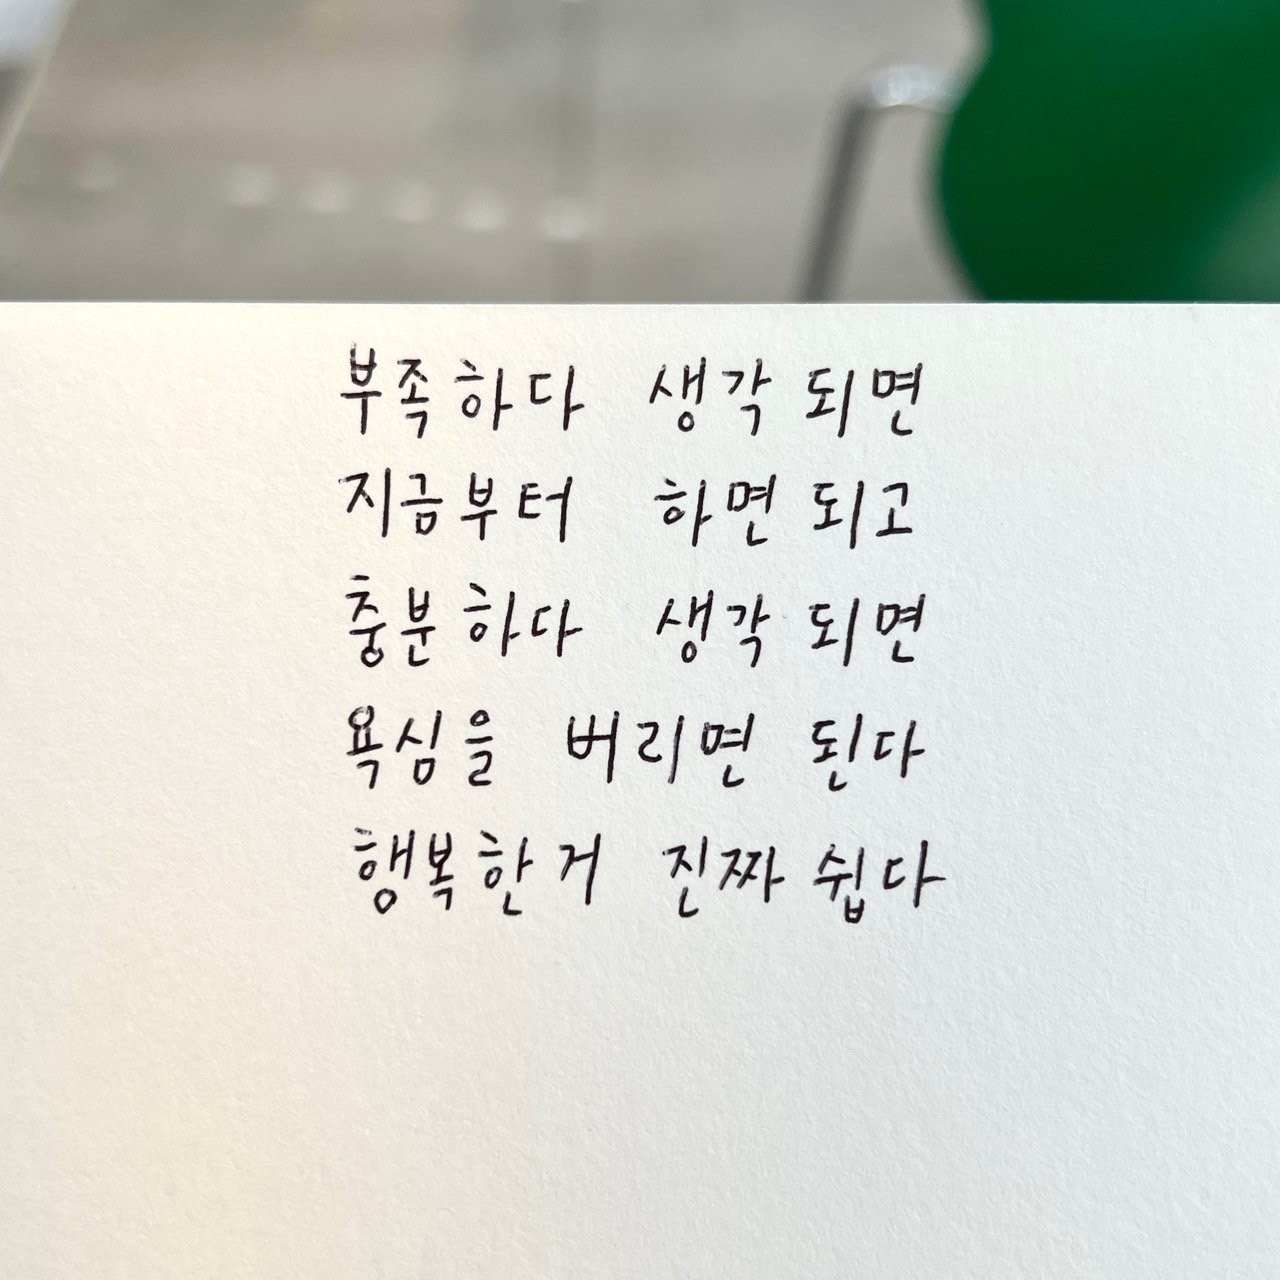 부족하다 생각되면
지금부터 하면되고
충분하다 생각되면
욕심을 버리면 된다
행복한거 진짜 쉽다